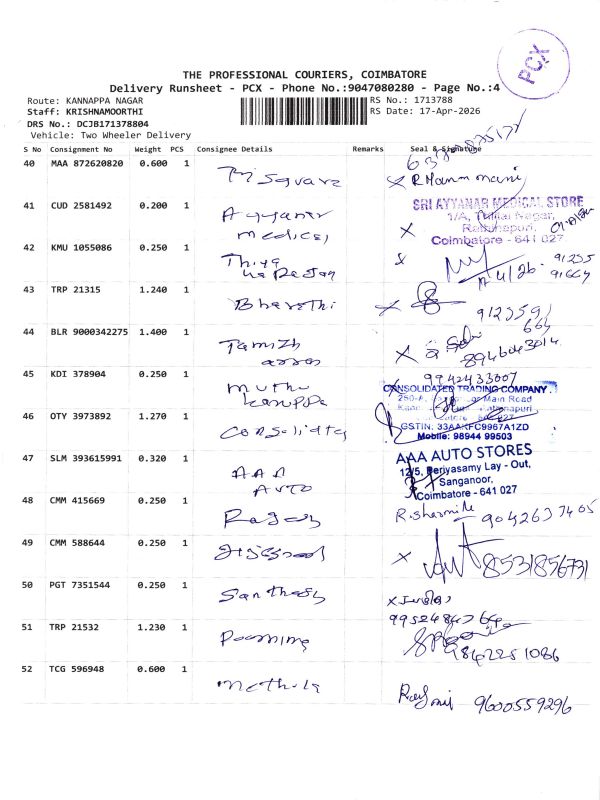 PCX
THE PROFESSIONAL COURIERS, COIMBATORE
Delivery Runsheet - PCX - Phone No.:9047080280 - Page No.:4
Route: KANNAPPA NAGAR
RS No.: 1713788
Staff: KRISHNAMOORTHI
RS Date: 17-Apr-2026
DRS No.: DCJB171378804
Vehicle: Two Wheeler Delivery
S No Consignment No Weight PCS Consignee Details Remarks Seal & Signature
40 MAA 872620820 0.600 1
Tri Square
41 CUD 2581492 0.200 1
SRI AYYANAR MEDICAL STORE
Ayyanar
Medical
Coimbatore - 641 027
42 KMU 1055086 0.250 1
Thiya
91235
43 TRP 21315 1.240 1
Bharathi
912359
44 BLR 9000342275 1.400 1
Tamizh
arasan
45 KDI 378904 0.250 1
9942433007
Muthu
CONSOLIDATED TRADING COMPANY
Main Road
46 OTY 3973892 1.270 1
GSTIN: 33AAKFC9967A1ZD
Mobile: 98944 99503
47 SLM 393615991 0.320 1
AAA AUTO STORES
12/5, Periyasamy Lay - Out,
Sanganoor,
Coimbatore - 641 027
AAA
Auto
48 CMM 415669 0.250 1
R. Sharmila 9042637405
49 CMM 588644 0.250 1
8531856731
50 PGT 7351544 0.250 1
Santhosh
51 TRP 21532 1.230 1
Poornima
9842251086
52 TCG 596948 0.600 1
Methila
9600559296